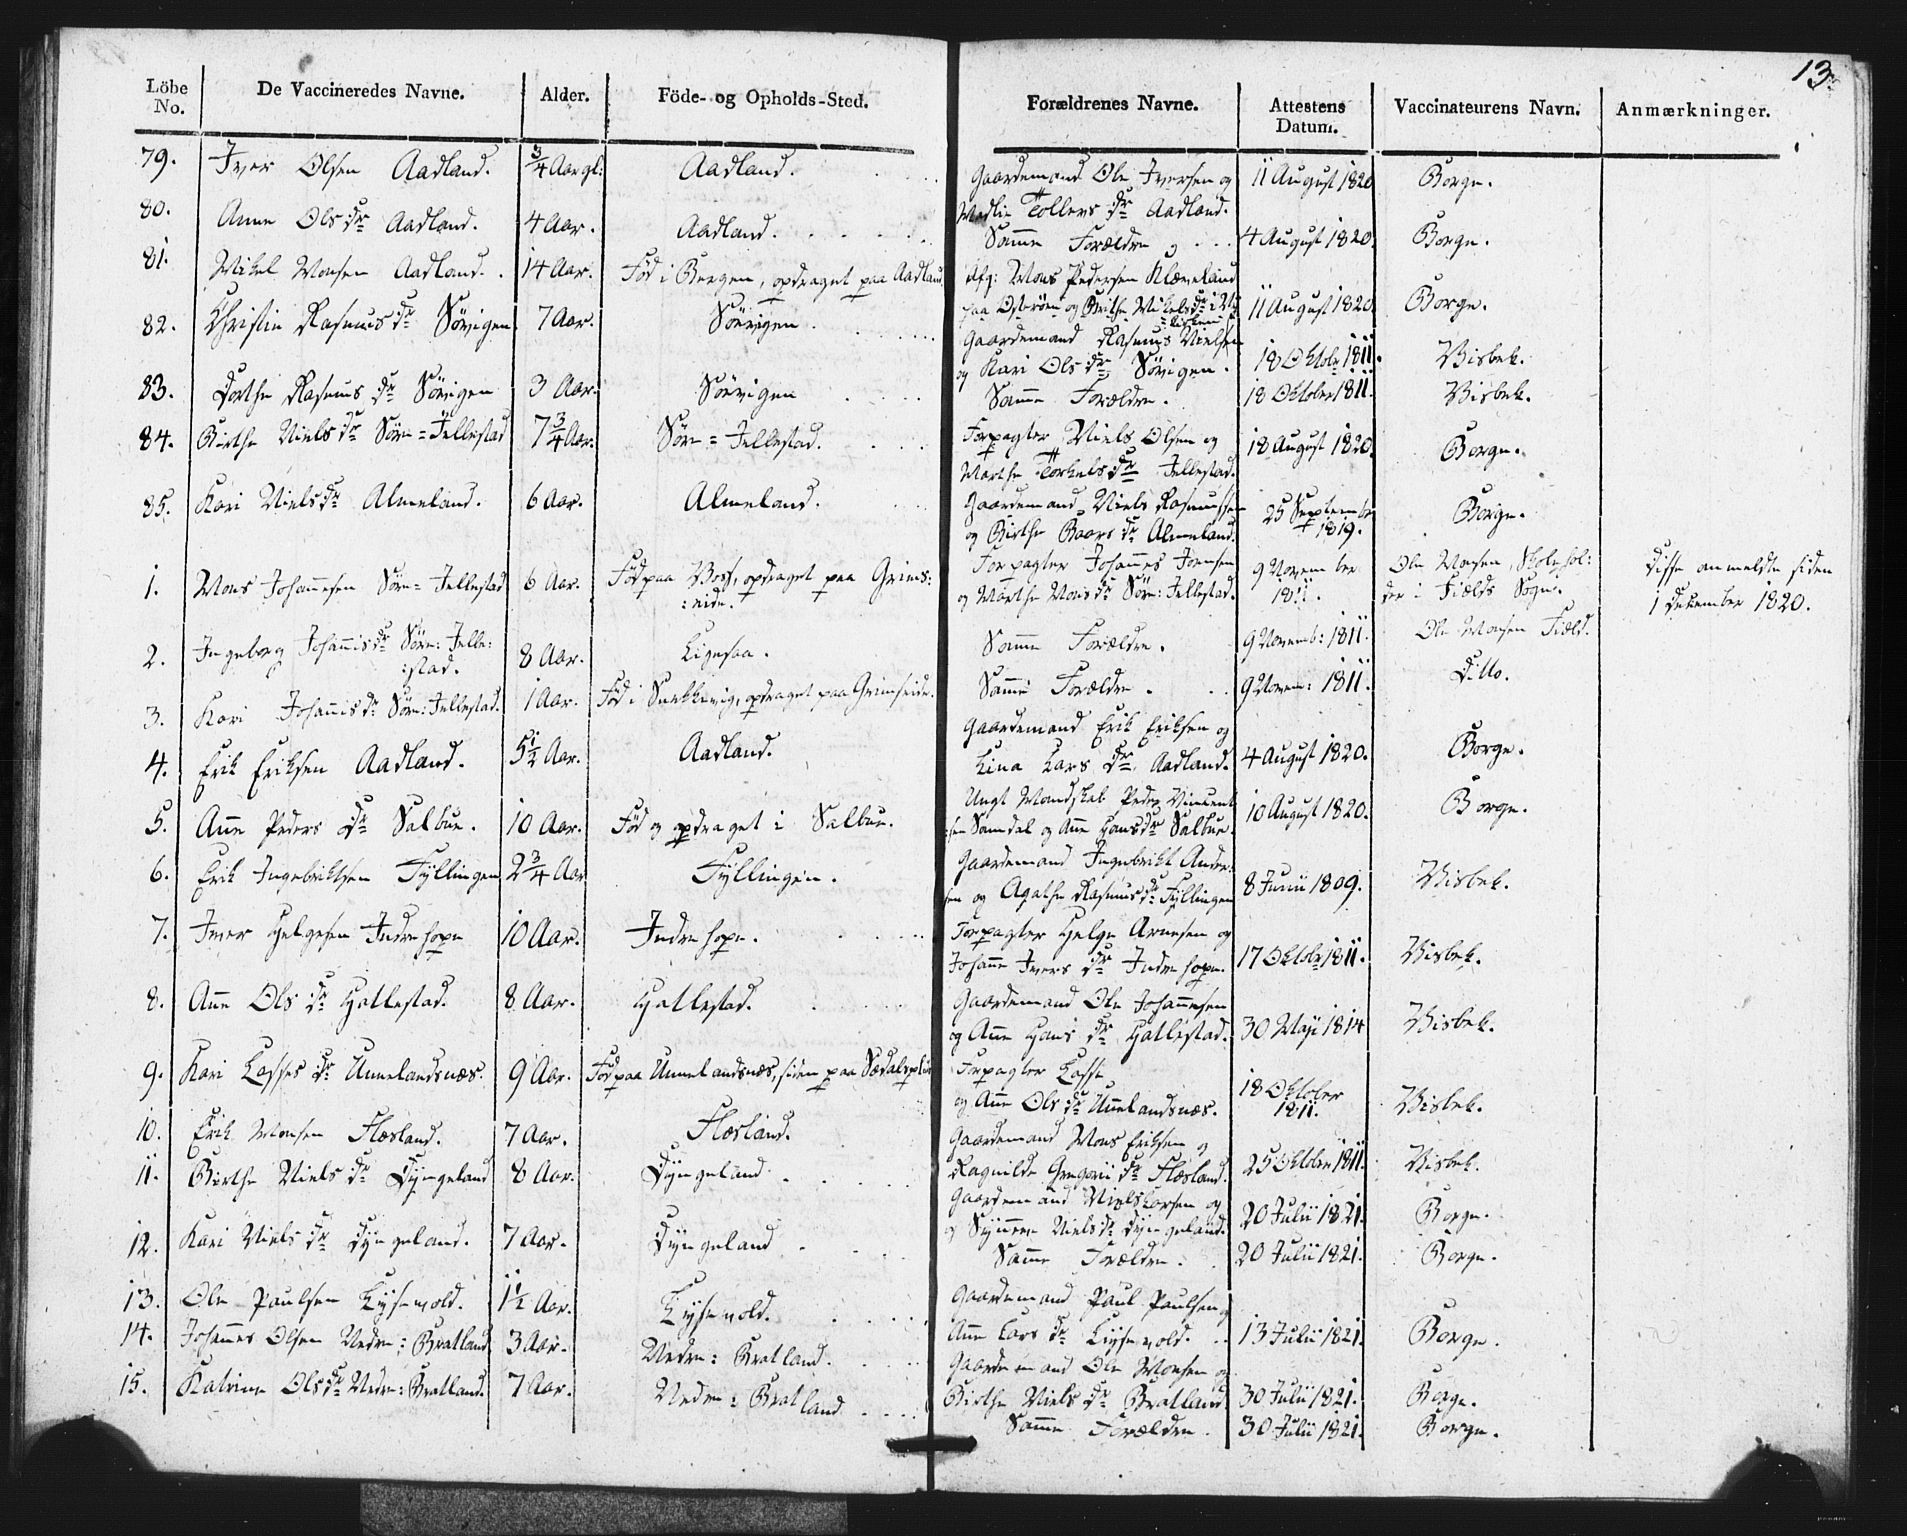 13
Löbe No. De Vaccineredes Navne. Alder. Föde- og Opholds-Sted. Forældrenes Navne. Attestens Datum. Vaccinateurens Navn. Anmærkninger.
79. Iver Olsen Aadland. 3/4 Aar gl: Aadland. Gaardemand Ole Iversen og 11 August 1820 Borge.
Tollevs Dr Aadland.
80. Anne Ols Dr Aadland. 4 Aar. Aadland. Samme Forældre 4 August 1820. Borge.
81. Mikel Monsen Aadland. 14 Aar. Fød i Bergen, opdraget paa Aadland Afg: Mons Pedersen Kleveland
paa Osterøen og Brithe Mikelsdr 11 August 1820 Borge.
82. Christin Rasmus Dr Sørvigen 7 Aar. Sørvigen Gaardemand Rasmus Nielsen
og Kari Ols Dr Sørvigen. 18 Oktobr 1811. Wisbek.
83. Dorthe Rasmus Dr Sørvigen 3 Aar. Sørvigen Samme Forældre. 18 Oktober 1811. Wisbek.
84. Birthe Niels Dr Søre=Jellestad 7 3/4 Aar. Søre=Jellestad. Forpagter Niels Olsen og 18 August 1820. Borge.
Marthe Torkels Dr Jellestad.
85. Kari Niels Dr Almeland. 6 Aar. Almeland. Gaardemand Niels Rasmussen 25 September 1819. Borge.
og Birthe Baars Dr Almeland.
1. Mons Johannesen Søre=Jellestad 6 Aar. Fød paa Voss, opdraget paa Grims:eide. Forpagter Johannes 9 November 1811. Ole Monsen, Skoleholder i Fjelds Sogn. Disse anmeldte siden
og Marthe Mons Dr Søre:Jellestad. 1 Dekember 1820.
2. Ingeborg Johannis Dr Søre:Jelle:stad. 8 Aar. Ligesaa. Samme Forældre. 9 Novemb: 1811. Ole Monsen Field.
3. Kari Johannis Dr Søre:Jellestad. 1 Aar. Fød i opdraget paa Grimseide. Samme Forældre. 9 Novem: 1811. Ditto.
4. Erik Eriksen Aadland. 5 1/2 Aar. Aadland. Gaardemand Erik Eriksen og
Lina Lars Dr Aadland. 4 August 1820. Borge.
5. Anne Peders Dr Salbue. 10 Aar. Fød og opdraget i Salbue. Ungt Mandskab Peder Vincent
:sen Samdal og Anne Hans Dr Salbue. 10 August 1820. Borge.
6. Erik Ingebriktsen Fyllingen 2 3/4 Aar Fyllingen. Gaardemand Ingebrikt Ander:
sen og Agathe Rasmus Dr Fyllingen 8 Junii 1809. Wisbek.
7. Iver Helgesen Indrehope 10 Aar. Indrehope. Forpagter Helge Arnesen og
Johanne Ivers Dr Indrehope. 17 Oktobr 1811. Wisbek.
8. Anne Ols Dr Hatlestad. 8 Aar. Hatlestad. Gaardemand Ole Johannesen
og Anne Hans Dr Hatlestad. 30 Maji 1814 Wisbek.
9. Kari Lasses Dr Unnelandsnæs. 9 Aar. Fød paa Unnelandsnæs, siden paa Forpagter Lasse
og Anne Ols Dr Unnelandsnæs. 18 Oktober 1811. Wisbek.
10. Erik Monsen Flæsland. 7 Aar. Flæsland. Gaardemand Mons Eriksen og
Ragnilde Gregorii Dr Flæsland. 25 Oktober 1811. Wisbek.
11. Birthe Niels Dr Dyngeland 8 Aar. Dyngeland. Gaardemand Niels Larsen og
og Synneve Niels Dr Dyngeland. 20 Julii 1821. Borge.
12. Kari Niels Dr Dyngeland. 7 Aar. Dyngeland Samme Forældre. 20 Julii 1821. Borge.
13. Ole Paulsen Lysevold. 1 1/2 Aar. Lysevold. Gaardemand Paul Paulsen og
Anne Lars Dr Lysevold. 13 Julii 1821. Borge.
14. Johannes Olsen Nedre:Bratland 3 Aar. Nedre:Bratland. Gaardemand Ole Monsen og
Birthe Niels Dr Bratland 30 Julii 1821. Borge.
15. Katrine Ols Dr Nedre:Bratland. 7 Aar. Nedre:Bratland Samme Forældre. 30 Julii 1821. Borge.